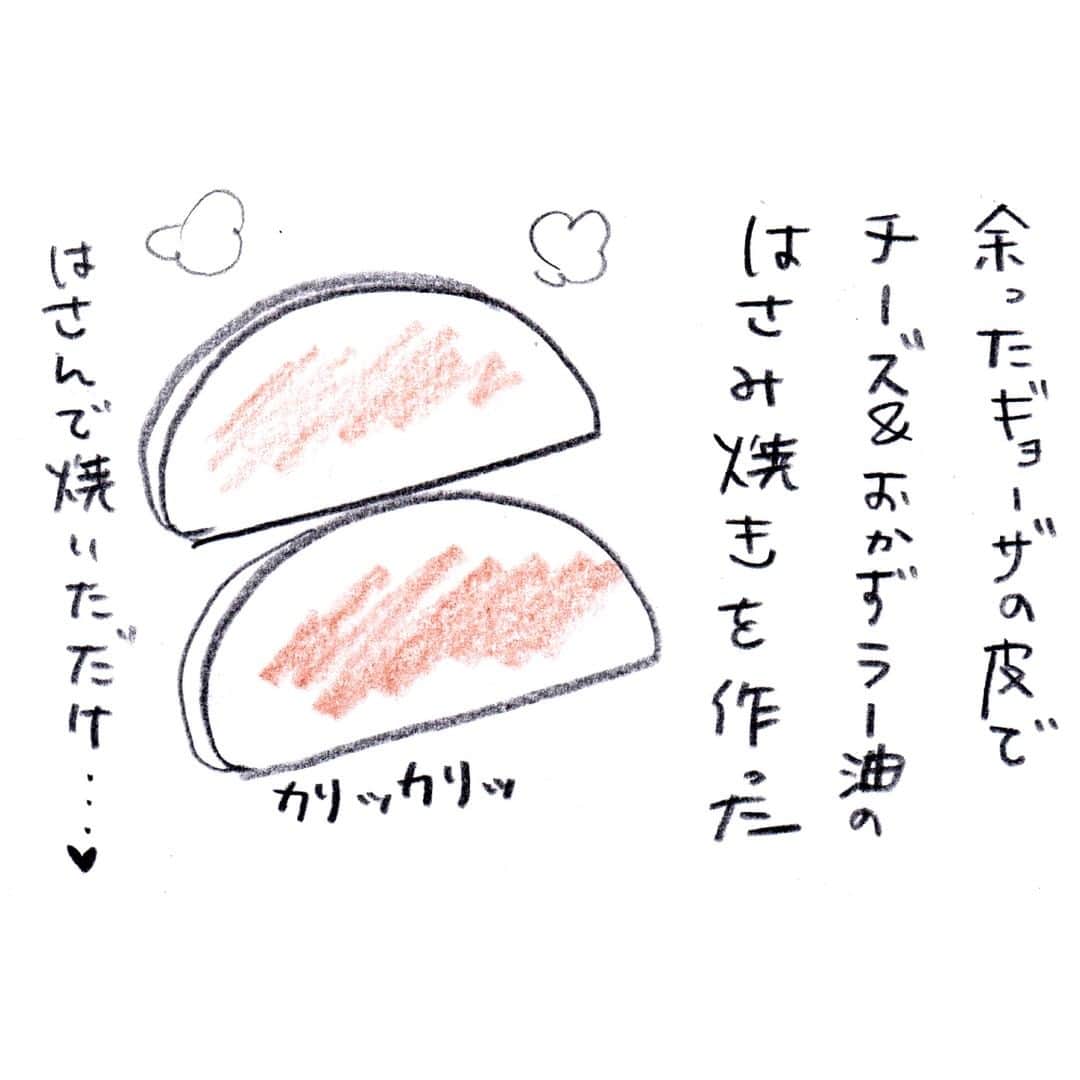 余ったギョーザの皮で
チーズ&おかずラー油の
はさみ焼きを作った
カリッカリッ
はさんで焼いただけ...♥